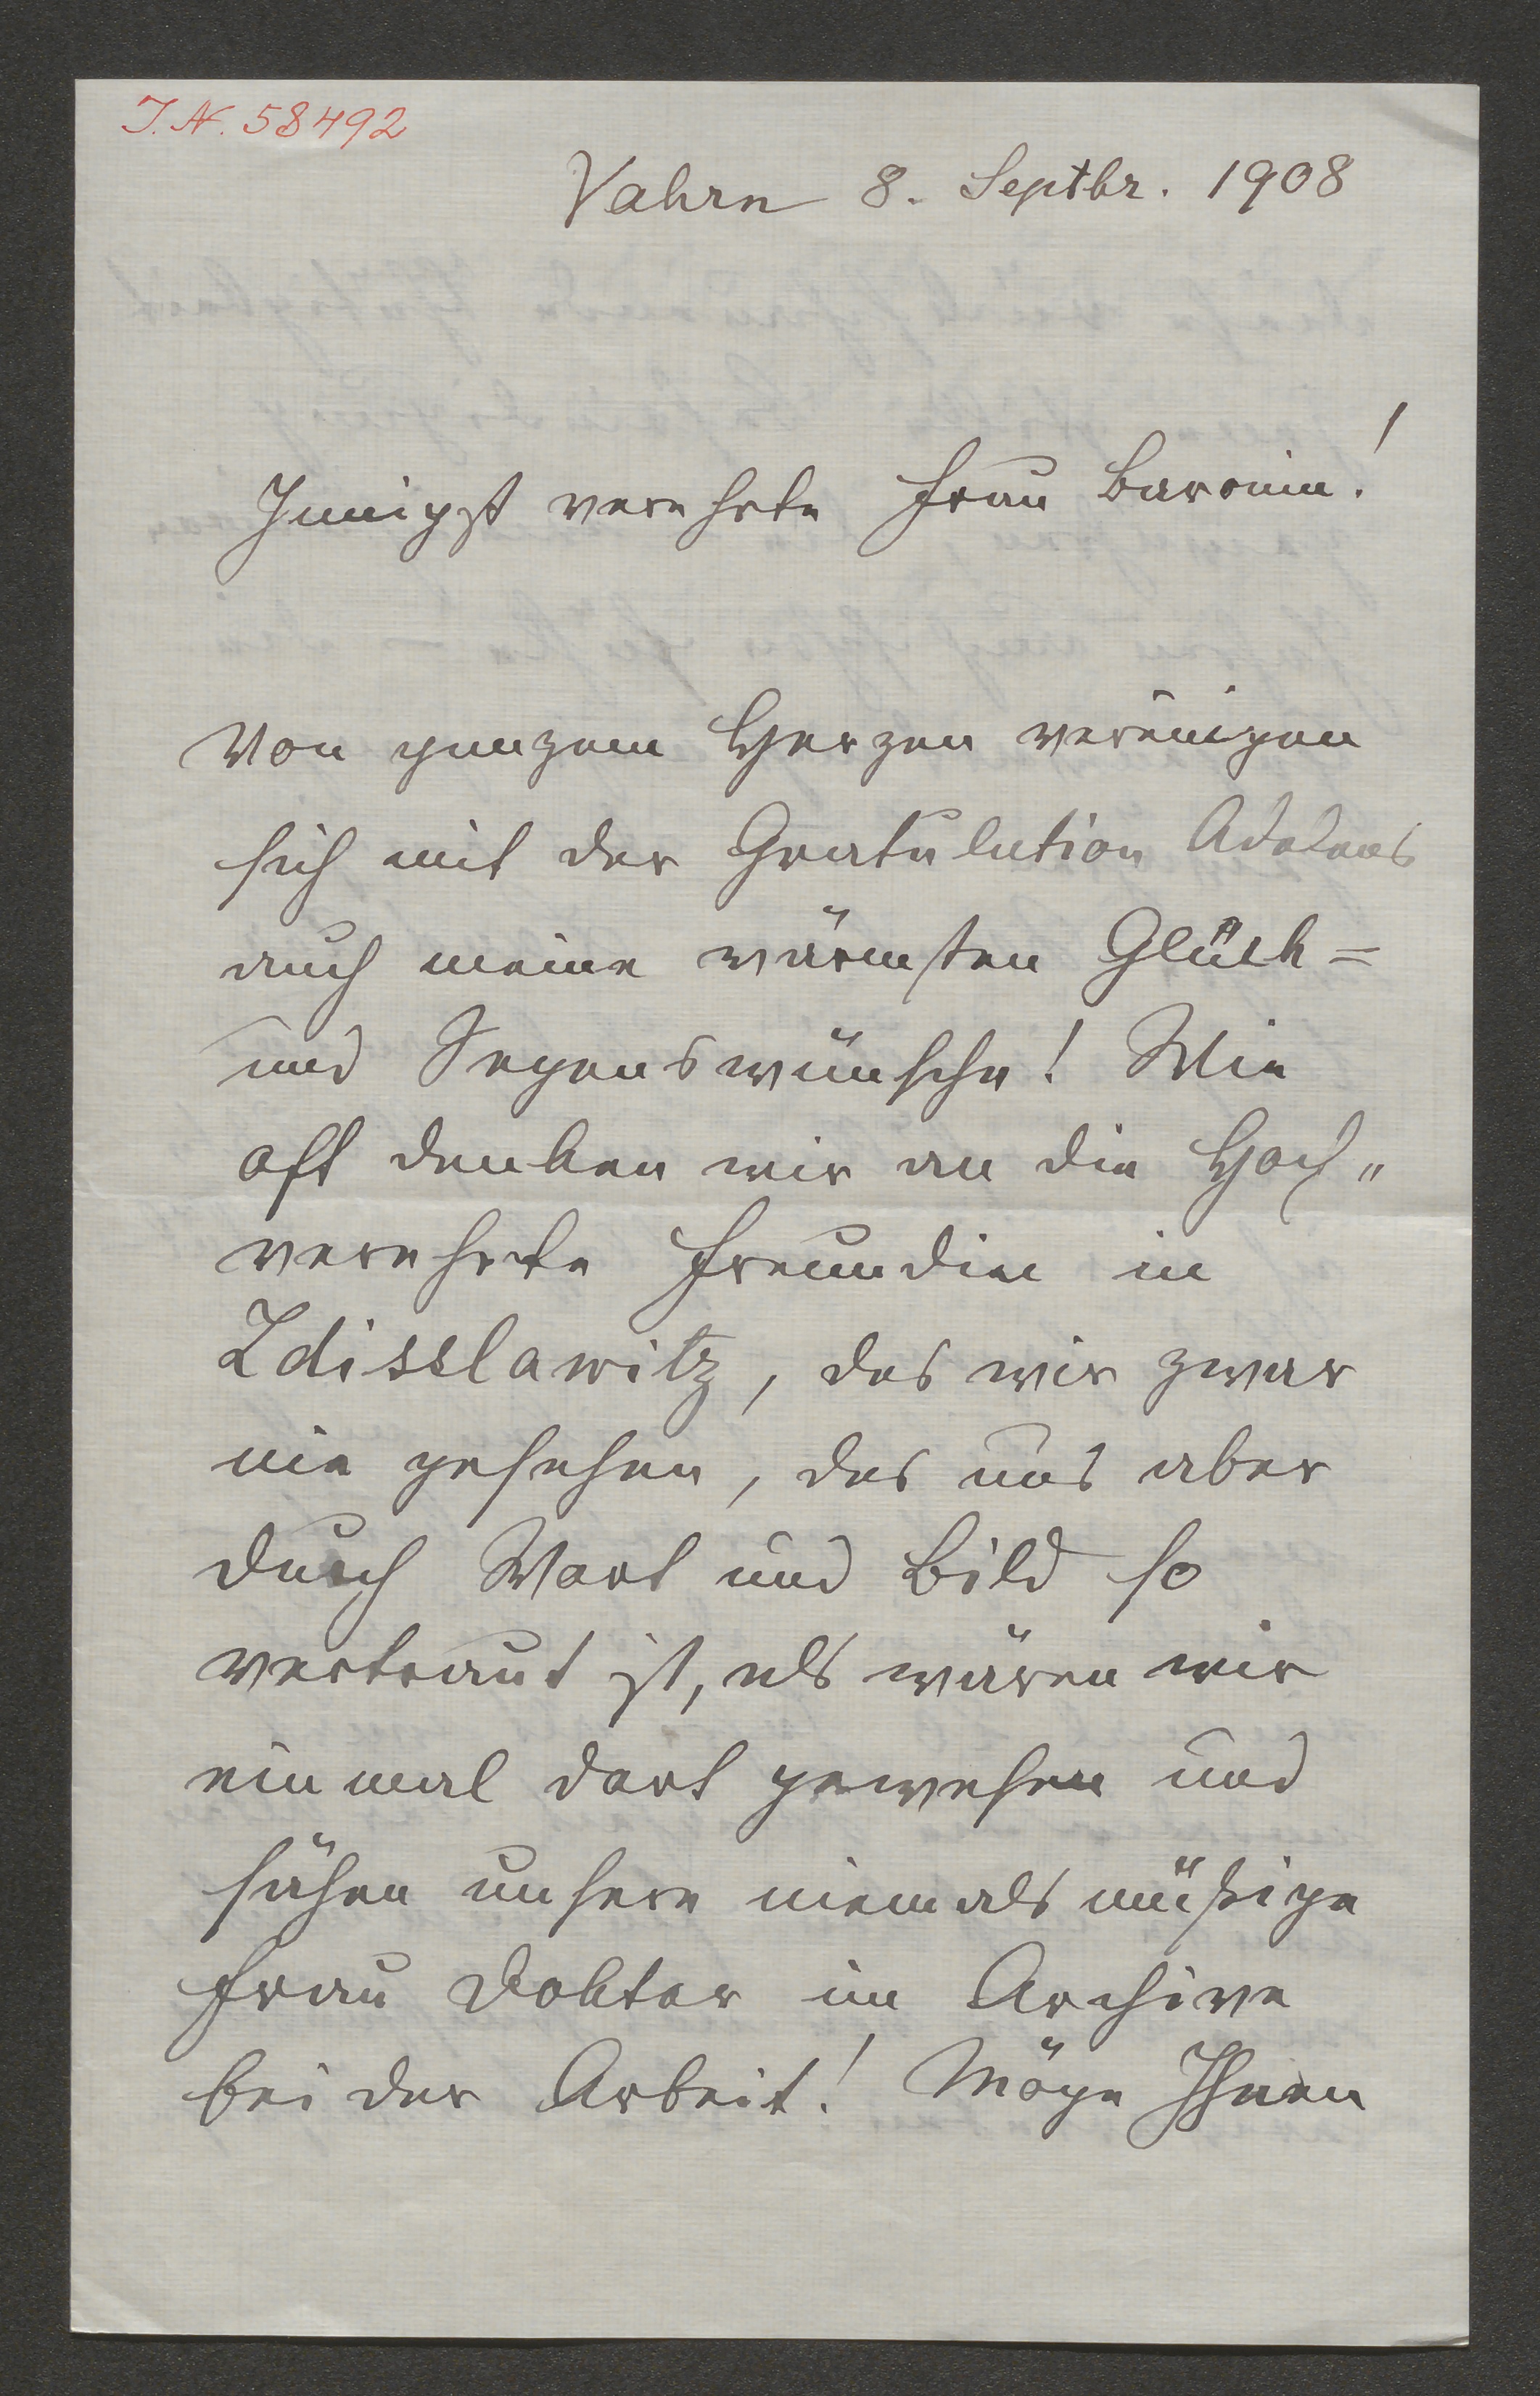 I. N. 58492
Vahrn 8. Septbr. 1908
Innigst verehrte Frau Baronin!
Von ganzem Herzen vereinigen
sich mit der Gratulation
auch meine wärmsten Glück=
und Segenswünsche! Wie
oft denken wir an die Hoch„
verehrte Freundin in
Zdisslawitz, das wir zwar
nie gesehen, das uns aber
durch Wort und Bild so
vertraut ist, als wären wir
einmal dort gewesen und
sähen unsere niemals müßige
Frau Doktor im Archive
bei der Arbeit! Möge Ihnen